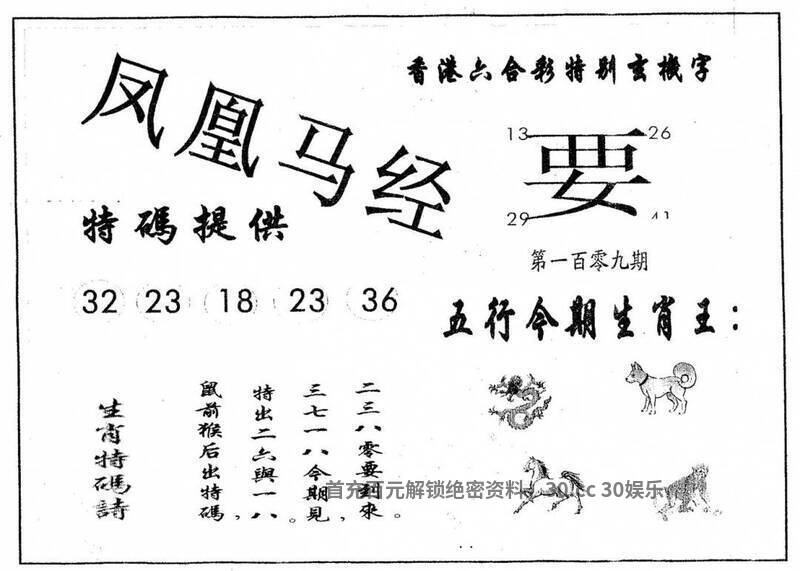 香港六合彩特别玄機字
凤凰马经
13 26
要
29 41
特碼提供
第一百零九期
32 23 18 23 36
五行今期生肖王：
二三八零要到來，
三七一八今期見。
特出二六與一八，
鼠前猴后出特碼。
生肖特碼詩
30娱乐